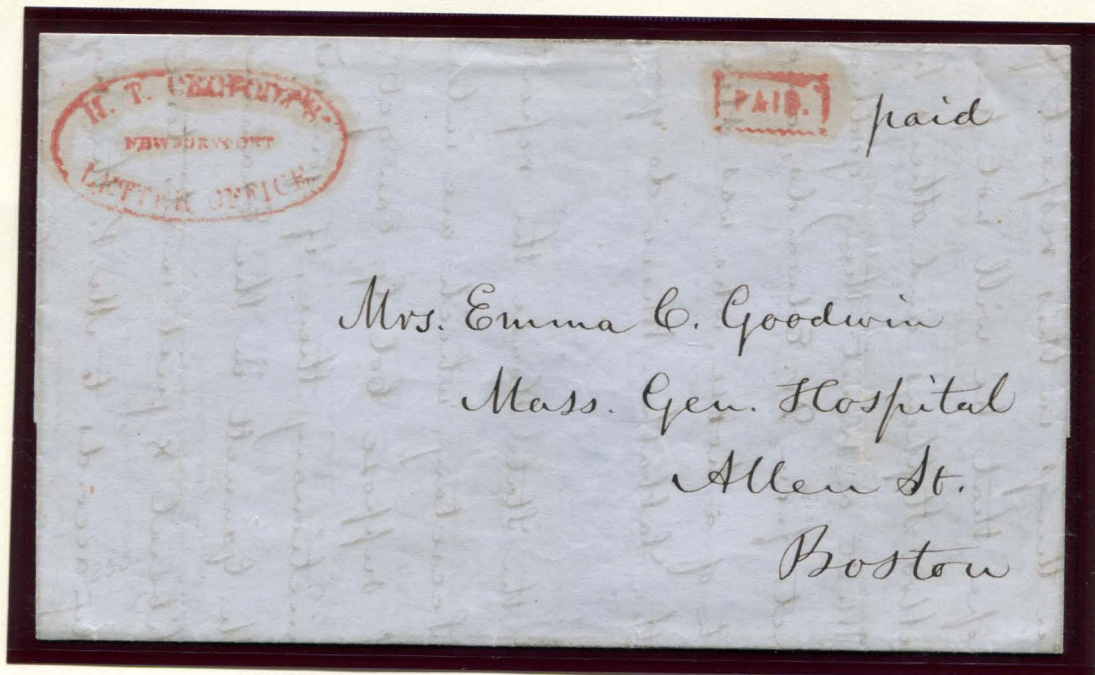 H. T.
NEWBURYPORT
LETTER OFFICE
PAID.
paid
Mrs. Emma C. Goodwin
Mass. Gen. Hospital
Allen St.
Boston